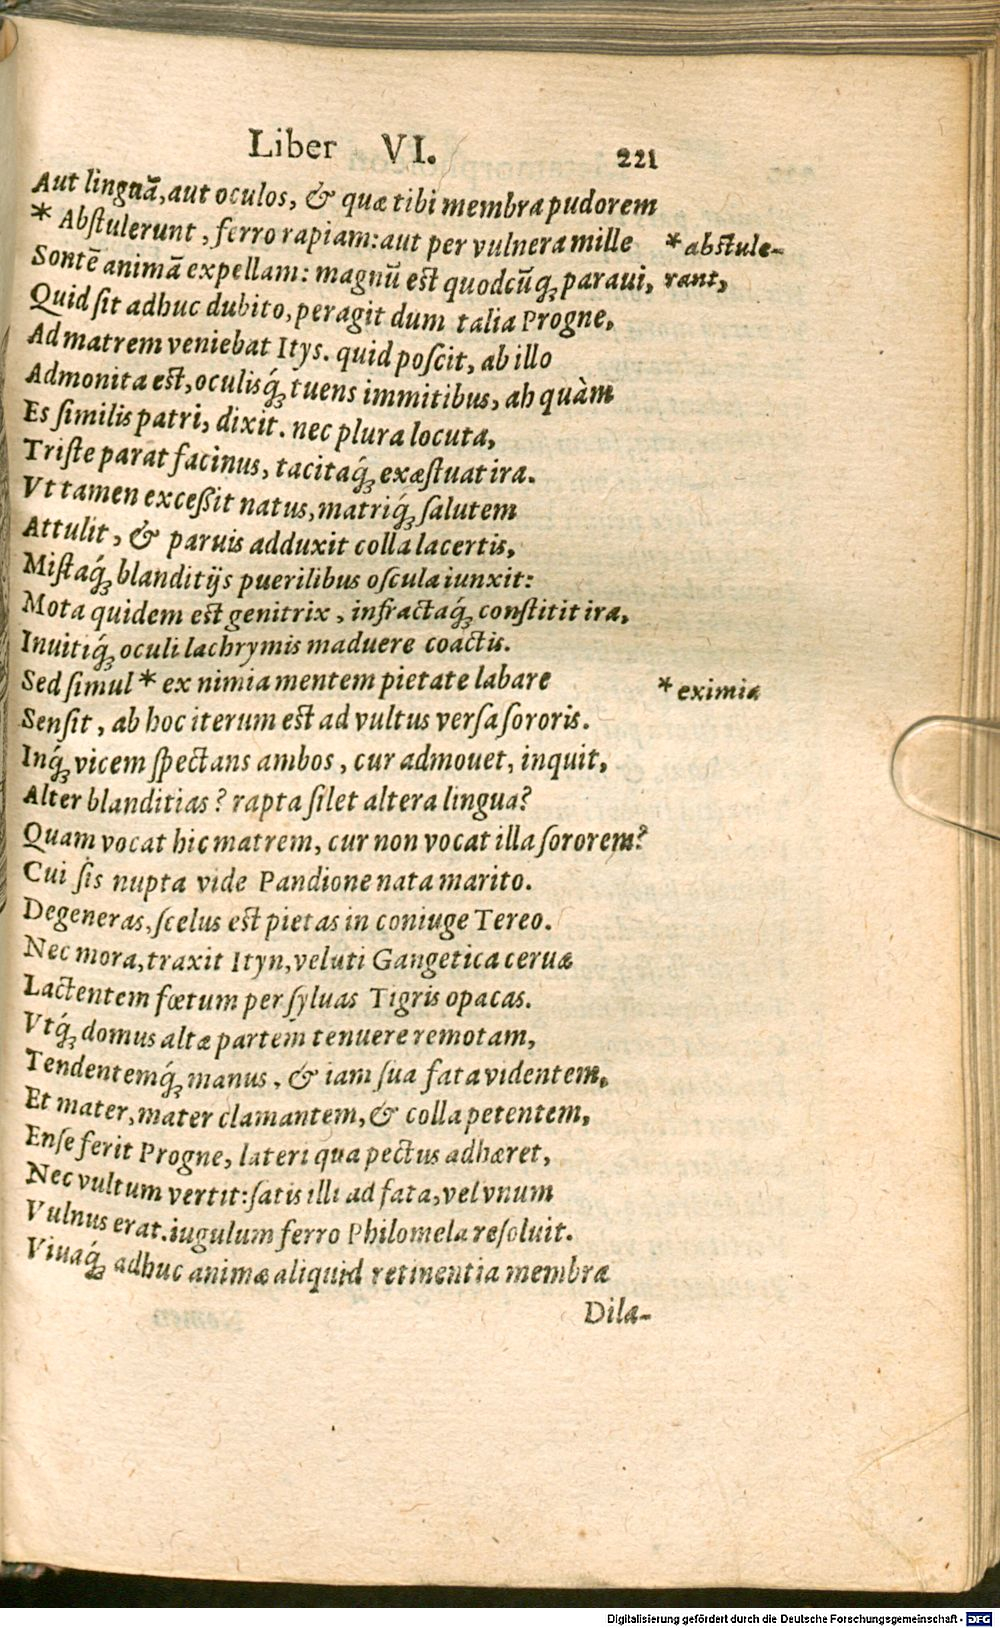 Liber VI. 221
Aut linguā, aut oculos, & quæ tibi membra pudorem
* Abſtulerunt, ferro rapiam: aut per vulnera mille * abſtule-
Sontē animā expellam: magnū est quodcūq; paraui, rant,
Quid ſit adhuc dubito, peragit dum talia Progne,
Ad matrem veniebat Itys. quid poſcit, ab illo
Admonita est, oculisq́; tuens immitibus, ah quàm
Es ſimilis patri, dixit. nec plura locuta,
Triſte parat facinus, tacitaq́; exæſtuat ira.
Vt tamen exceßit natus, matriq́; ſalutem
Attulit, & paruis adduxit colla lacertis,
Miſtaq́; blanditijs puerilibus oſcula iunxit:
Mota quidem est genitrix, infractaq́; conſtitit ira,
Inuitiq́; oculi lachrymis maduere coactis.
Sed ſimul * ex nimia mentem pietate labare * eximia
Senſit, ab hoc iterum est ad vultus verſa ſororis.
Inq́; vicem ſpectans ambos, cur admouet, inquit,
Alter blanditias? rapta ſilet altera lingua?
Quam vocat hic matrem, cur non vocat illa ſororem?
Cui ſis nupta vide Pandione nata marito.
Degeneras, ſcelus est pietas in coniuge Tereo.
Nec mora, traxit Ityn, veluti Gangetica ceruæ
Lactentem fœtum per ſyluas Tigris opacas.
Vtq́; domus altæ partem tenuere remotam,
Tendentemq́; manus, & iam ſua fata videntem,
Et mater, mater clamantem, & colla petentem,
Enſe ferit Progne, lateri qua pectus adhæret,
Nec vultum vertit: ſatis illi ad fata, vel vnum
Vulnus erat. iugulum ferro Philomela reſoluit.
Viuaq́; adhuc animæ aliquid retinentia membræ
Dila-
Digitalisierung gefördert durch die Deutsche Forschungsgemeinschaft - DFG